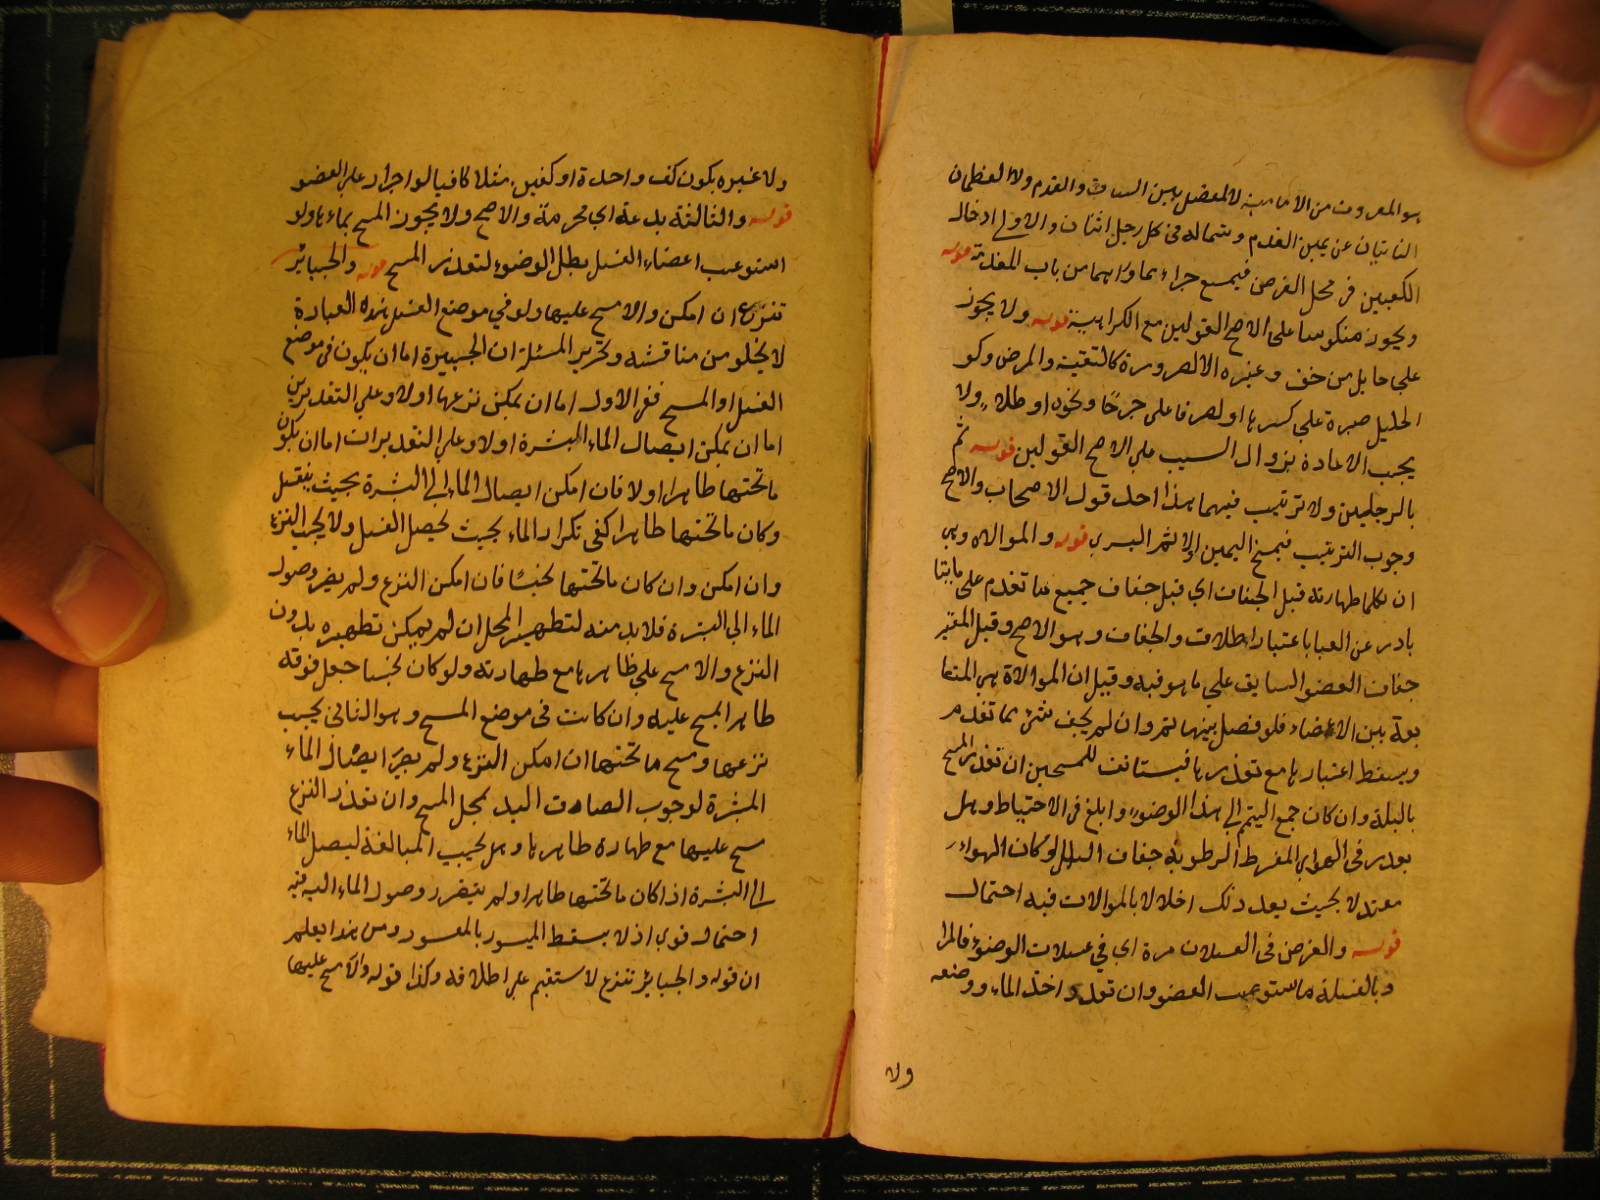 هو المعروف من الامامية لا المفصل بين الساق والقدم ولا العظمان
الناتيان عن يمين القدم وشماله في كل رجل اثنان والاولى ادخال
الكعبين في محل الفرض فيمسح جزاء بما وراهما من باب المقدمة قوله
ويجوز منكوسا على الاصح القولين مع الكراهية قوله ولا يجوز
على حايل من خف وغيره الا لضرورة كالتقية والمرض وكو
الحليل صبرة على كسرها او لصرفا على جرحا ونحوه او طلاء ولا
يجب الاعادة بزوال السبب على الاصح القولين قوله ثم
بالرجلين ولا ترتيب فيهما هذا احد قول الاصحاب والاصح
وجوب الترتيب فيمسح اليمين اولا ثم اليسرى قوله والموالاه وهي
ان يكلها طهارته قبل الجفاف اي قبل جفاف جميع ما تقدم على
بادر عن العبا باعتبار اطلاق والجفاف وهو الاصح وقبل المعتبر
جفاف العضو السابق على ما هو فيه وقيل ان الموالاة هي المتعا
بعة بين الاعضاء فلو فصل بينها اثم وان لم يجف شئ مما تقدم
ويسقط اعتبارها مع تعذرها فيستانف للمسحين ان تعذر المسح
بالبلة وان كان جمع اليتم الى هذا الوضوء وابلغ في الاحتياط وهل
يعذر في الهواء المفرط الرطوبة جفاف البلل لو كان الهواء
معتدلا بحيث يعد ذلك اخلالا بالموالات فيه احتمال
قوله والفرض في الغسلات مرة اي في غسلات الوضوء فالمرا
د بالغسلة ما يستوعب العضو وان تعدد اخذ الماء ووضعه
ولا
ولا غيره يكون كف واحدة او كفين مثلا كافيا لو اجراد على العضو
قوله والثالثة بدعة اي محرمة والاصح ولا يجوز المسح بماءها ولو
استوعب اعضاء الغسل بطل الوضوء لتعذر المسح قوله والجبائر
تنزع ان امكن والا مسح عليها ولو في موضع الغسل هذه العبارة
لا يخلو من مناقشه وتحرير المسئلة ان الجبيرة اما ان يكون في موضع
الغسل او المسح ففي الاول اما ان يمكن نزعها اولا وعلى التقديرين
اما ان يمكن ايصال الماء البشرة اولا وعلى التقديرات اما ان يكون
ما تحتها طاهرا اولا فان امكن ايصال الماء الى البشرة بحيث ينغسل
وكان ما تحتها طاهرا كفى تكرار الماء بحيث يحصل الغسل ولا يجب النزع
وان امكن وان كان ما تحتها نجسا فان امكن النزع ولم يضر وصول
الماء الى البشرة فلا بد منه لتطهير المحل ان لم يمكن تطهيره بدون
النزع والا مسح على ظاهرها مع طهارته ولو كان نجسا جعل فوقه
طاهرا لمسح عليه وان كانت في موضع المسح وهو الثاني يجب
نزعها ومسح ما تحتها ان امكن النزع ولم يجز ايصال الماء
المبشرة لوجوب الصاق اليد بمحل المسح وان تعذر النزع
مسح عليها مع طهارة ظاهرها وهل يجب المبالغة ليصل الماء
الى البشرة اذا كان ما تحتها طاهرا ولم يتضرر وصول الماء اليه فيه
احتمال قوي اذ لا يسقط الميسور بالمعسور ومن هذا يعلم
ان قوله والجبائر تنزع لا يستقيم على اطلاقه وكذا قوله والا مسح عليها